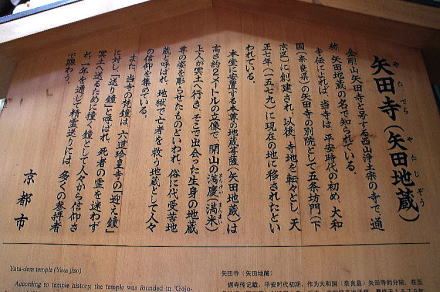 矢田寺（矢田地蔵）
やたでら やたじぞう
金剛山矢田寺と号す西山浄土宗の寺で、通
称、矢田地蔵の名で知られている。
寺伝によれば、当寺は、平安時代の初め、大和
国（奈良県）の矢田寺の別院として五条坊門（下
京区）に創建され、以後、寺地を転々とし、天
正七年（一五七九）に現在の地に移されたとい
われている。
本堂に安置する本尊の地蔵菩薩（矢田地蔵）は
高さ約２メートルの立像で、開山の満慶（満米）
上人が冥土へ行き、そこで出会った生身の地蔵
尊の姿を彫らせたものといわれ、俗に代受苦地
蔵と呼ばれ、地獄で亡者を救う地蔵として人々
の信仰を集めている。
また、当寺の梵鐘は、六道珍皇寺の「迎え鐘」
に対し、「送り鐘」と呼ばれ、死者の霊を迷わず
冥土へ送るために撞く鐘として人々から信仰さ
れ、一年を通じて精霊送りには、多くの参拝者
で賑わう。
京都市
Yata-dera temple (Yata Jizo)
According to temple history, the temple was founded in "Gojo-
矢田寺（矢田地藏）